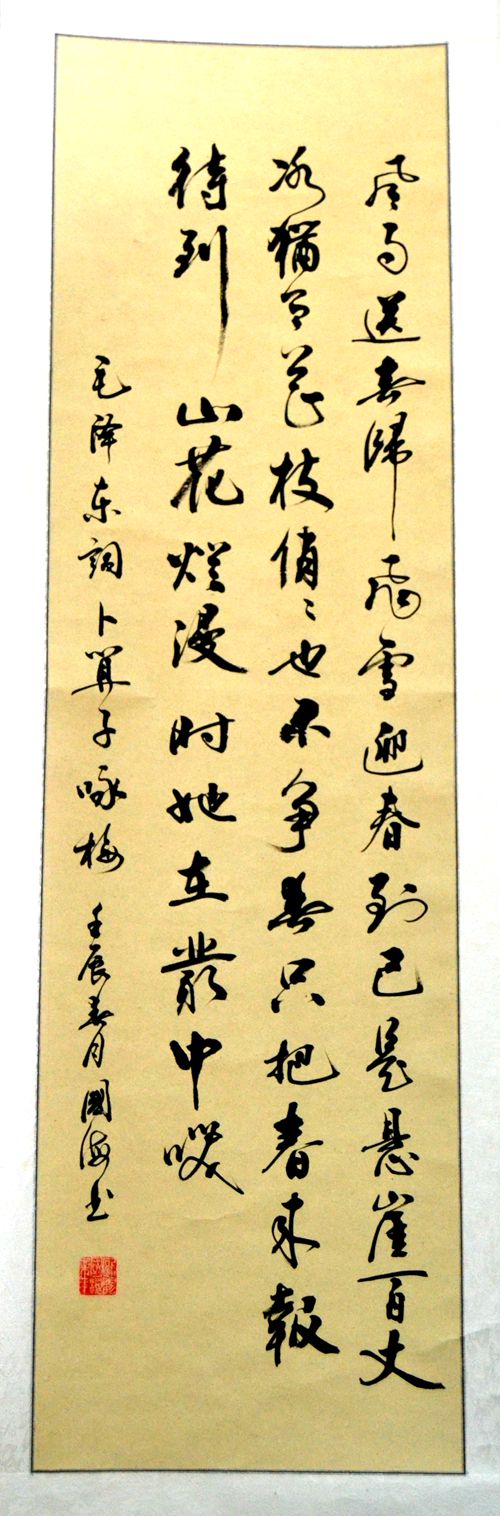 风雨送春歸飛雪迎春到已是悬崖百丈
冰猶有花枝俏俏也不争春只把春来報
待到山花烂漫时她在叢中咲
毛泽东詞卜算子咏梅 壬辰春月國海书